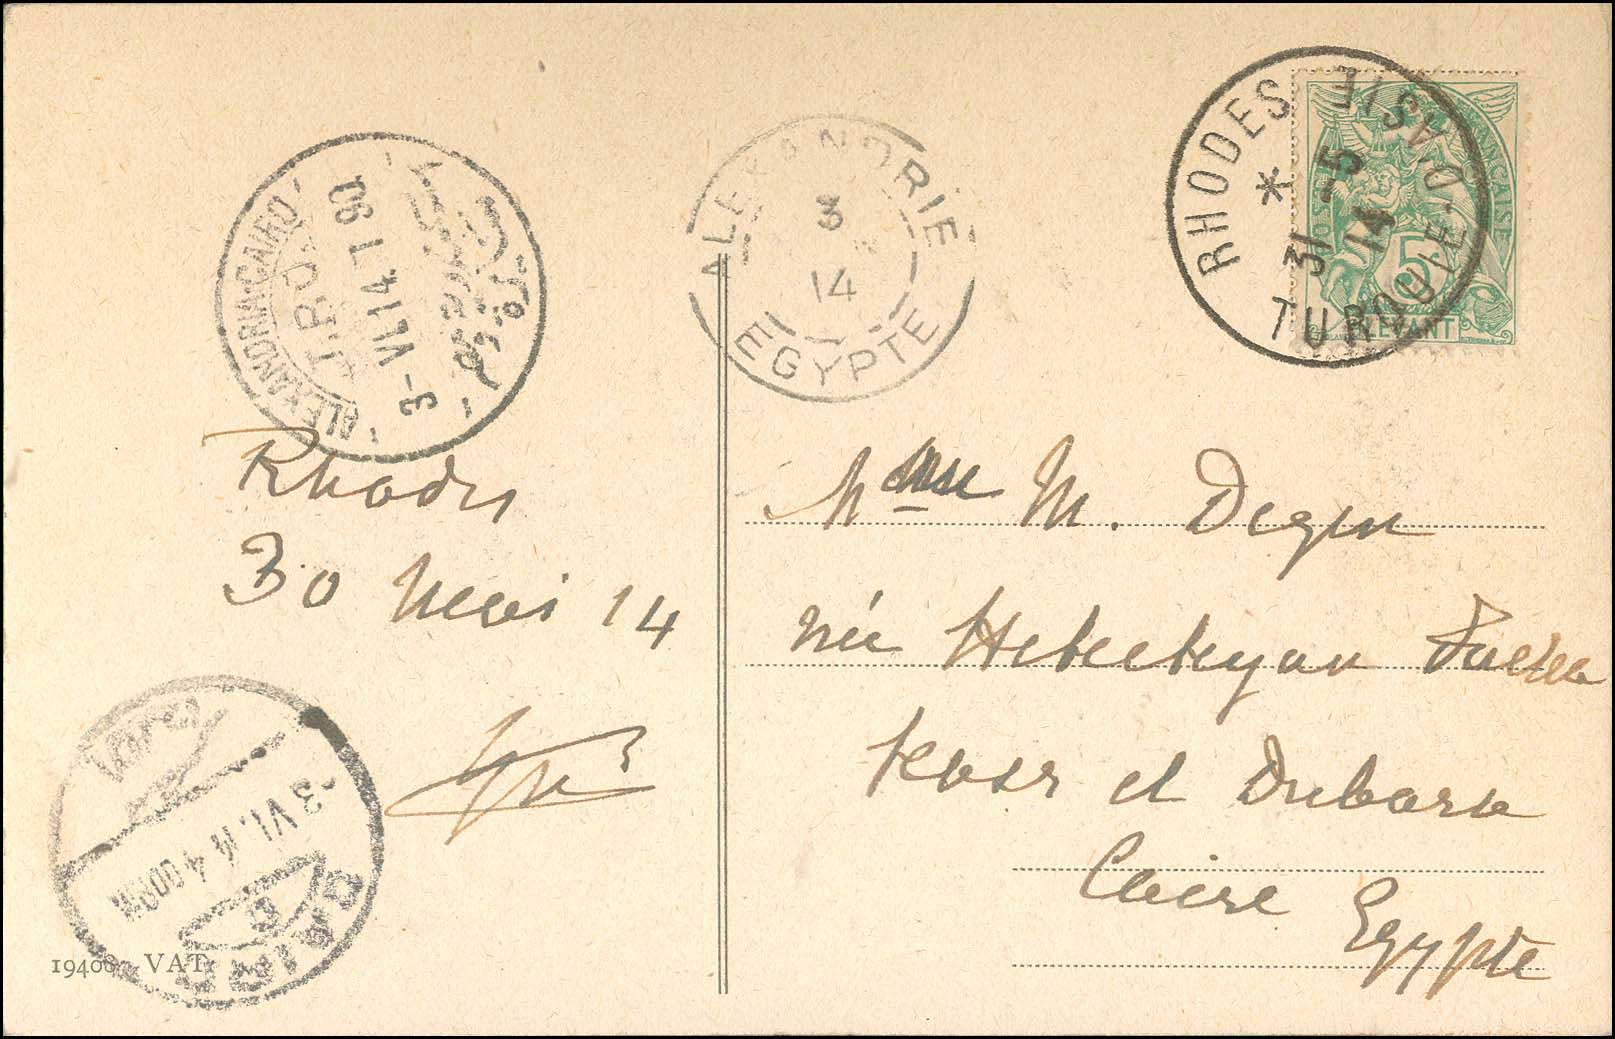 RHODES * TURQUIE-D'ASIE
31 -5
14
FRANÇAISE
5
LEVANT
ALEXANDRIE
3
14
EGYPTE
ALEXANDRIA-CAIRO
T.P.O.
3-VI.14.T.90
Rhodes
30 Mai 14
Mme M. Degen
née Hekekyan Pacha
Kasr el Dubara
Caire
Egypte
CAIRO
D
3 VI. 14 4
VAT